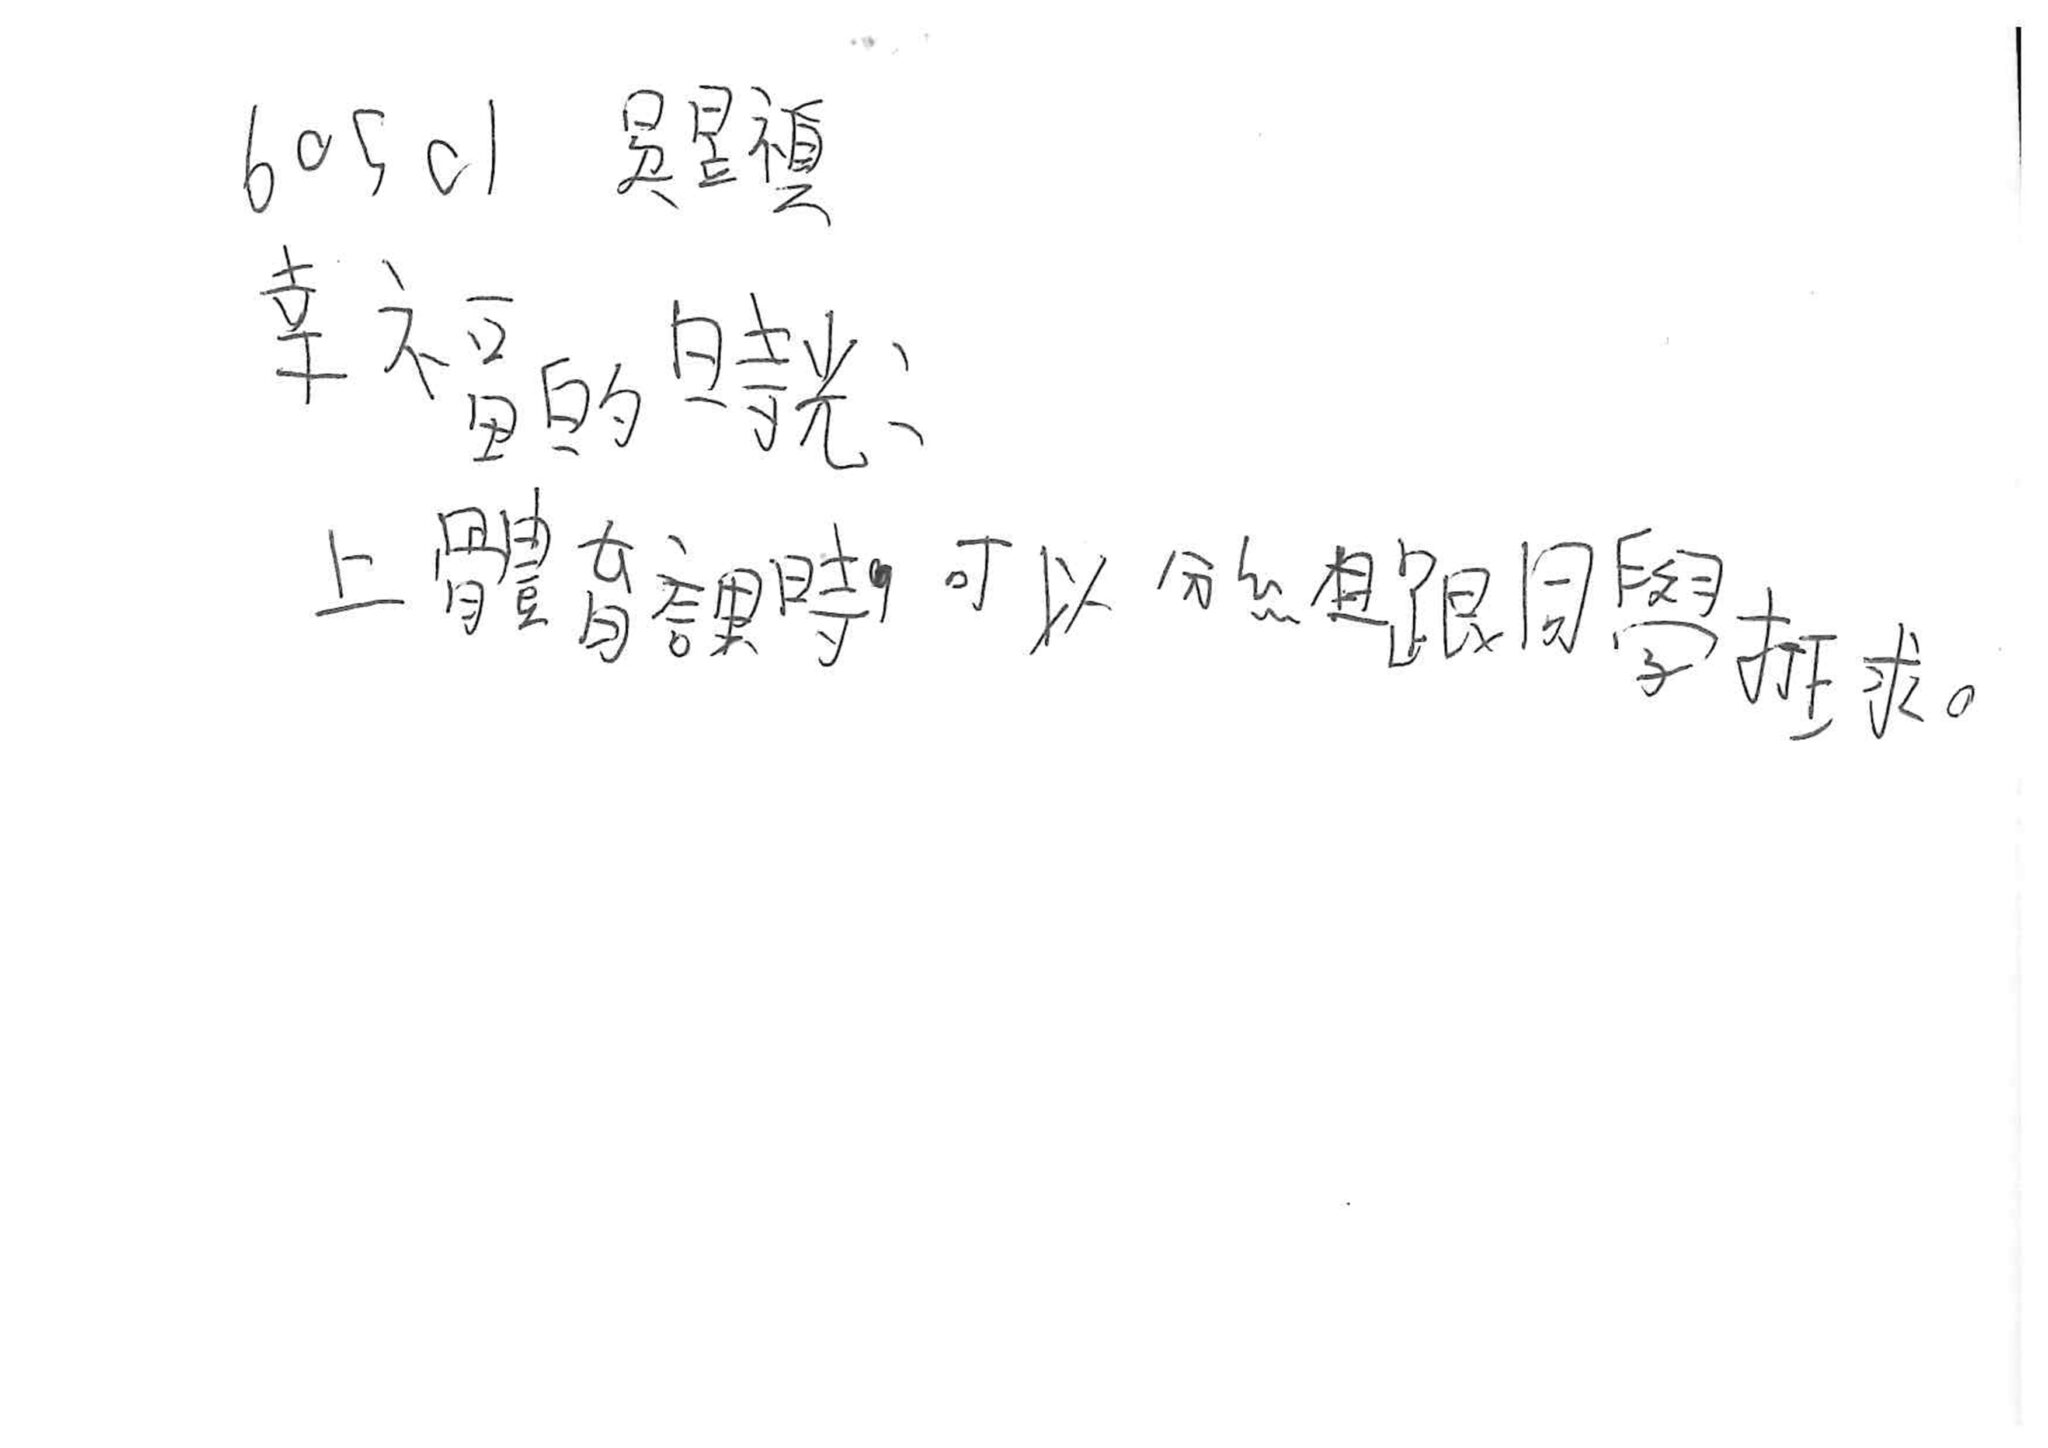 60501 吳昰禛
幸福的時光:
上體育課時,可以分組跟同學打球。